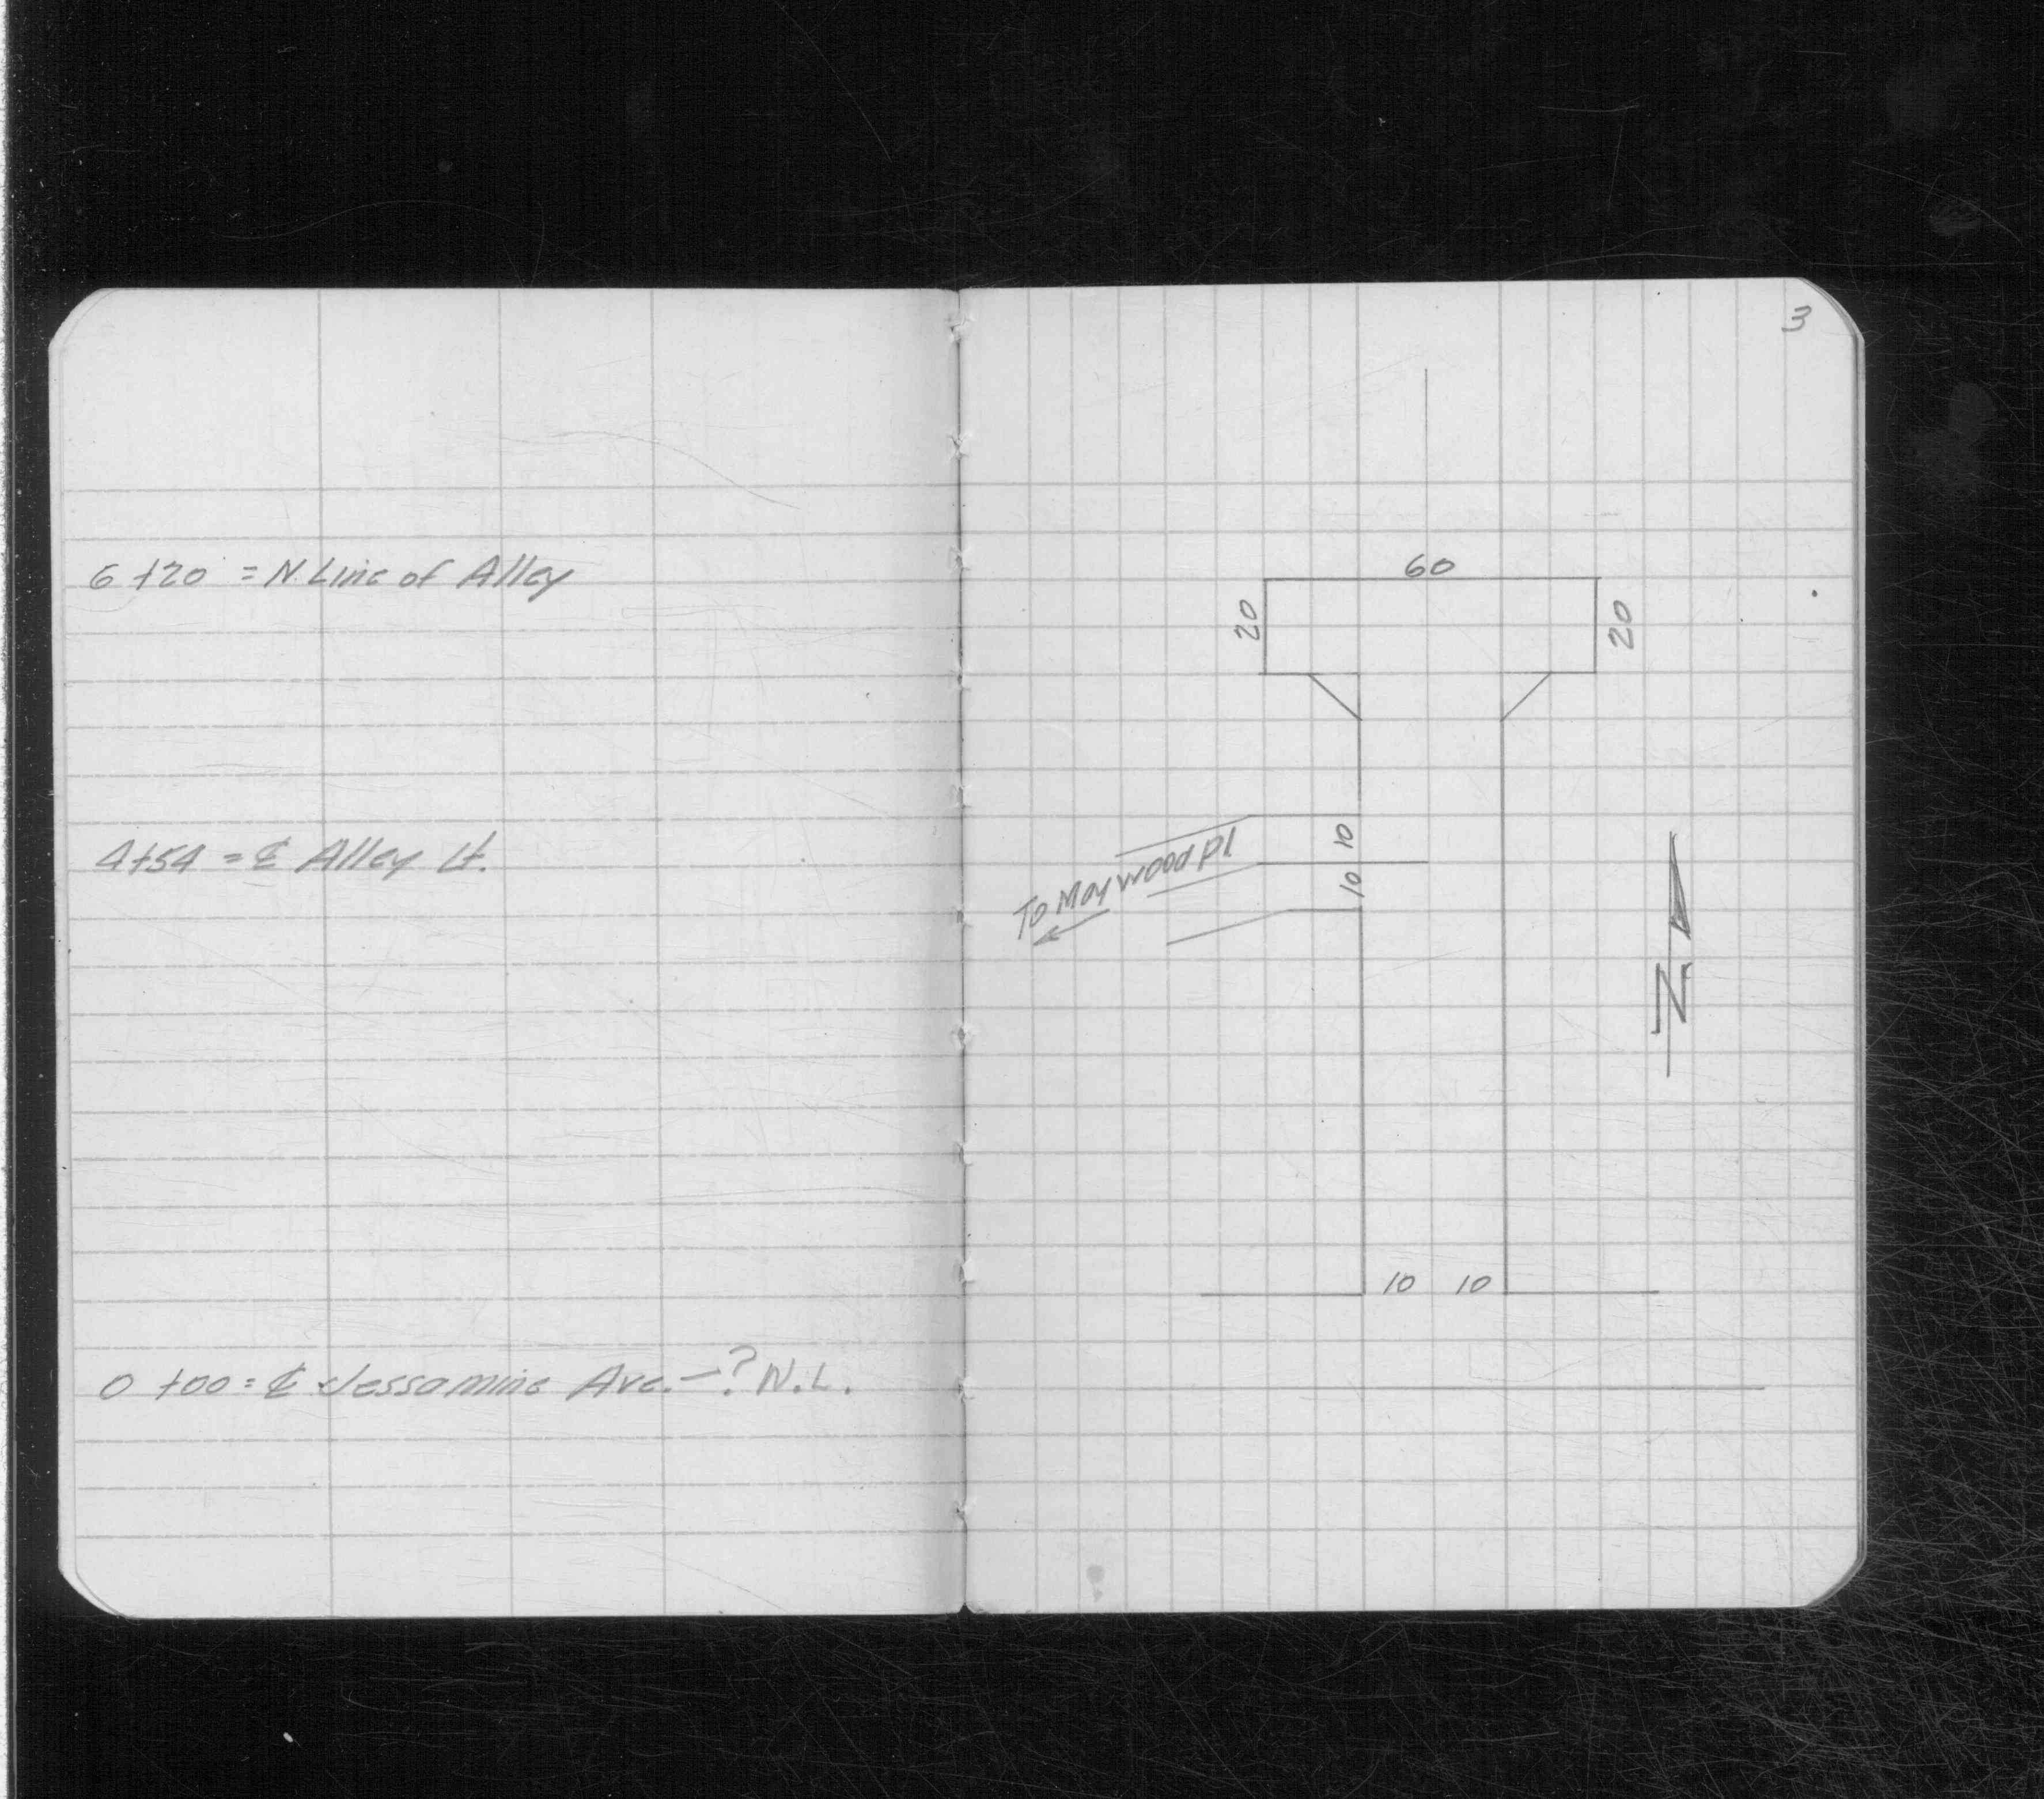 6+20 = N. Line of Alley
4+54 = ℄ Alley Lt.
0+00 = ℄ Jessamine Ave. - ? N.L.
3
60
20
20
10
10
To Maywood Pl
N
10 10